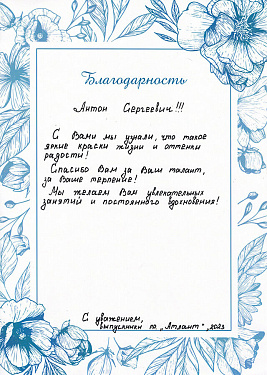 Благодарность
Антон Сергеевич!!!
С Вами мы узнали, что такое
яркие краски жизни и оттенки
радости!
Спасибо Вам за Ваш талант,
за Ваше терпение!
Мы желаем Вам увлекательных
занятий и постоянного вдохновения!
С уважением,
выпускники гр. "Атлант", 2023